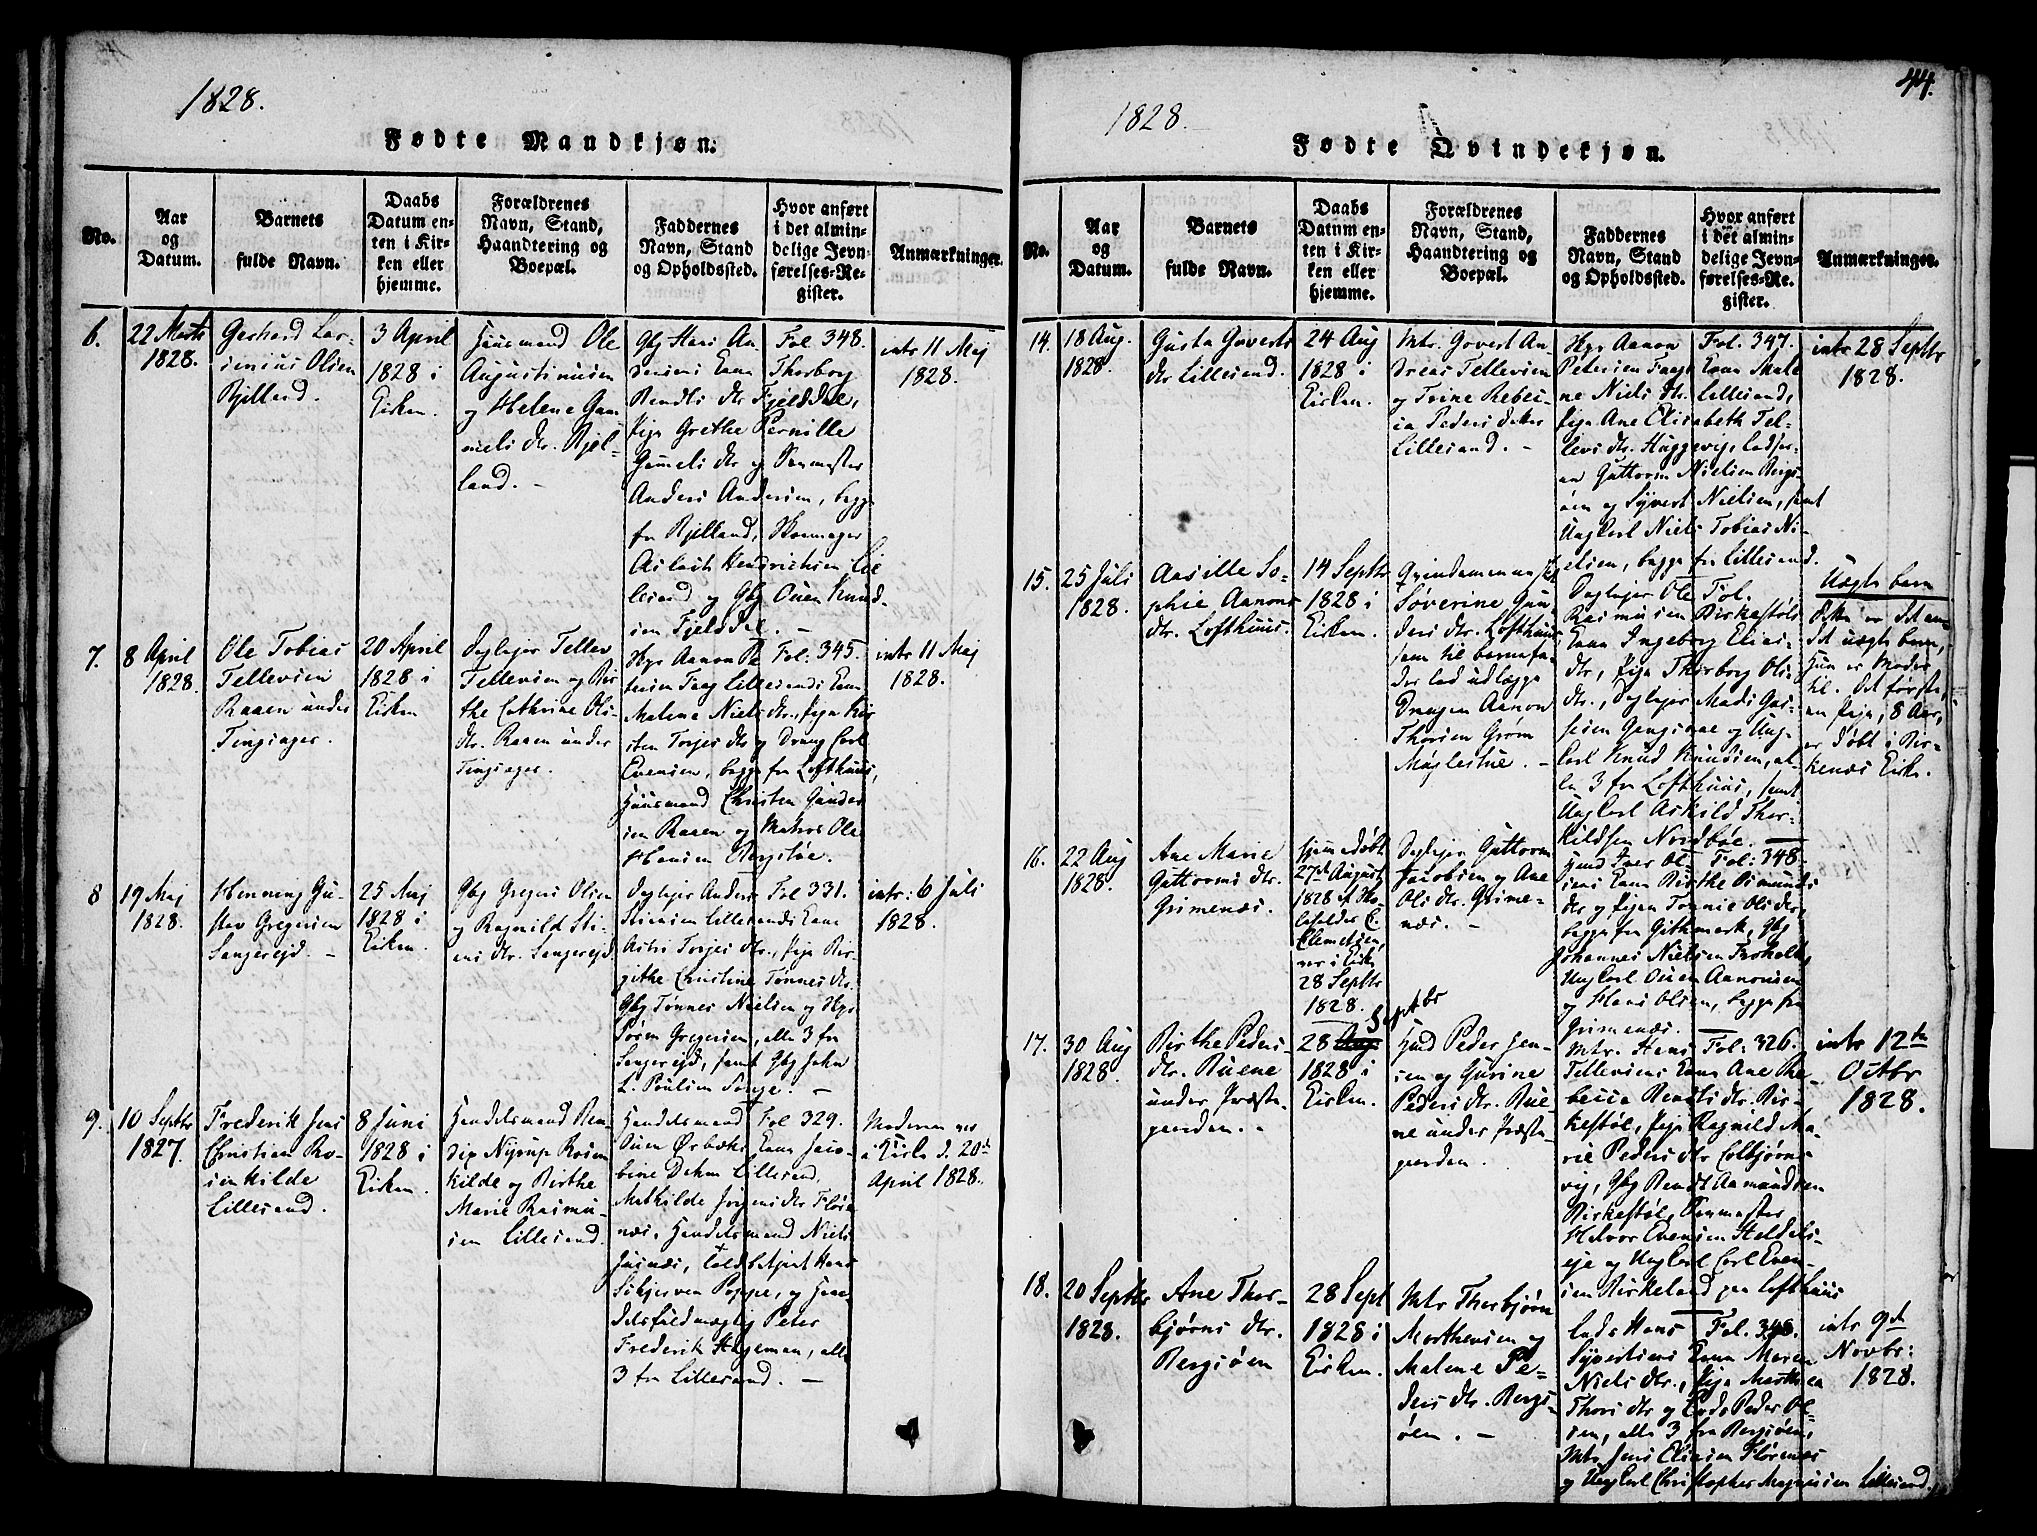 1828.
Fødte Mandkjøn.
No.
Aar
og
Datum.
Barnets
fulde Navn.
Daabs
Datum en-
ten i Kir-
ken eller
hjemme.
Forældrenes
Navn, Stand,
Haandtering og
Boepæl.
Faddernes
Navn, Stand
og Opholdssted.
Hvor anført
i det almin-
delige Jevn-
førelses-Re-
gister.
Anmærkninger.
6.
22 Marts
1828.
Gerhard Lar-
sinius Olsen
Kjelland.
3 April
1828 i
Kirken.
Huusmand Ole
Augustinusen
og Helene Gun
niels dtr. Kjel-
land. -
Gbj Hans An
dersens Kone
Bendts dtr Fjelddal,
Pige Grethe Pernille
Gunnels dtr og
Anders Andersen, begge
fra Kjelland, Skomager
Aslach Hendrichsen Lil
lesand og Gbj Ouen Knud-
sen Fjeldal. -
Fol 348.
Thorborg
intr 11 Maj
1828.
7.
8 April
1828.
Ole Tobias
Tellevsen
Raaen under
Tingsager.
20 April
1828 i
Kirken
Daglejer Tellev
Tellevsen og Bir
the Cathrine Ols-
dtr. Raaen under
Tingsager.
Hgr Aanon Pe
tersen Taag Lillesands Kone
Malene Niels dtr., Pige Kir
sten Torjes dtr og Dreng Carl
Evensen, begge fra Lofthuus,
Huusmand Christen Gunder
sen Raaen og Matros Ole
Hansen Bergsøe.
Fol: 345.
intr 11 Maj
1828.
8
19 Maj
1828.
Henning Gu-
stav Gregersen
Sangereid. -
25 Maj
1828 i
Kirken.
Gbj Gregers Olsen
og Ragnild Sti-
ens dtr. Sangereid
Daglejer Anders
Stiesen Lillesands Kone
Astri Torjes dtr., Pige Bir-
githe Christine Tønnes dtr.
Gbj Tønnes Nielsen og Hgr
Søren Gregersen, alle 3 fra
Sangereid, samt Gbj John
L. Poulsen Songe. -
Fol 331.
intr: 6 Juli
1828.
9.
10 Septbr
1827.
Frederik Jens
Christian Ro-
senkilde
Lillesand.
8 Juni
1828 i
Kirken.
Handelsmand Ben
dix Nyrup Rosen
kilde og Birthe
Marie Rasmu-
sen Lillesand.
Handelsmand
Ouen Ørbæks Kone Jaco-
bine Dahm Lillesand,
Mathilde Jørgens dtr Fløre
næs, Handelsmand Niels
Juenæs, Toldbetjent Hans
Schjerven Poppe, og Han-
delsfuldmægtig Peter
Frederik Hageman, alle
3 fra Lillesand. -
Fol 329.
Moderen var
i Kirke d. 20de
April 1828.
44.
1828.
Fødte Qvindekjøn.
No.
Aar
og
Datum.
Barnets
fulde Navn.
Daabs
Datum en-
ten i Kir-
ken eller
hjemme.
Forældrenes
Navn, Stand,
Haandtering og
Boepæl.
Faddernes
Navn, Stand
og Opholdssted.
Hvor anført
i det almin-
delige Jevn-
førelses-Re-
gister.
Anmærkninger.
14.
18 Aug.
1828.
Gusta Goverts
dtr Lillesand.
24 Aug
1828 i
Kirken.
Mtr. Govert An-
dreas Tellevsen
og Trine Rebec-
ca Peders datter
Lillesand. -
Hgr Aanon
Petersen Taags Kone Male
ne Niels dtr. Lillesand,
Pige Ane Elisabeth Tel-
levs dtr. Huggevig, Lodser-
en Guttorm Nielsen Bergs
øen og Syvert Nielsen, samt
Ungkarl Niels Tobias Ni-
elsen, begge fra Lillesand.
Fol. 347.
intr 28 Septbr
1828.
15.
25 Juli
1828.
Aasille So-
phie Aanons
dtr. Lofthuus.
14 Septbr
1828 i
Kirken.
Qvindemennesket
Søverine Gun-
ders dtr. Lofthuus
som til barnefa-
der lod udlægge
Drengen Aanon
Thorsen Grøm
Møglestue. -
Daglejer Ole
Rasmusen Birkestøls
Kone Ingeborg Elias-
dtr, Pige Thorborg Ols-
dtr., Daglejer Mads Gas-
sesen Gangsaae og Ung-
karl Knud Knudsen, al-
le 3 fra Lofthuus, samt
Ungkarl Askild Thor-
kildsen Nordbøe.
Fol.
Uægte barn
Dette er det an-
det uægte barn,
hun er Moder
til. Det første,
en Pige, 8 Aar,
er døbt i Bir-
kenæs Kirke.
16.
22 Aug
1828.
Ane Marie
Guttorms dtr.
Grimenæs.
Hjemmedøbt
27de August
1828 af Sko-
leholder C.
Clemetsen,
var i Kirke
28 Septbr
1828.
Daglejer Guttorm
Jacobsen og Ane
Ols dtr. Grime-
næs. -
Hmd Iver Ol
sens Kone Birthe Osmunds
dtr og Pigen Tonnie Ols dtr,
begge fra Githmark, Gbj
Johannes Nielsen Froholt,
Ungkarl Ouen Aanonsen
og Hans Olsen, begge fra
Grimenæs.
Fol: 348.
17.
30 Aug
1828.
Birthe Peders
dtr. Ruene
under Præste-
gaarden. -
28 Aug Septbr
1828 i
Kirken.
Hmd Peder Jen-
sen og Gurine
Peders dtr. Rue-
ne under Præste-
gaarden.
Mtr. Hans
Tellevsens Kone Ane Re-
becca Bendts dtr. Bir-
kestøl, Pige Ragnild Ma-
rie Peders dtr Colbjørns-
vig, Gbj Bendt Aamundsen
Birkestøl,
Halvor Evensen Heldals-
eje og Ungkarl Carl Even-
sen Birkeland paa Lofthuus
Fol: 326.
intr 12te
Octbr
1828.
18.
20 Septbr
1828.
Ane Thor-
bjørns dtr.
Bergsøen
28 Sept
1828 i
Kirken.
Mtr Thorbjørn
Morthensen og
Malene Pe-
ders dtr. Bergs-
øen. -
Lods Hans
Syvertsens Kone Maren
Niels dtr., Pige Marthea
Thors dtr og Lods Peder Ol-
sen, alle 3 fra Bergsøen,
Mtr. Jens Eliasen Florenæs
og Ungkarl Christopher Magnusen Lillesand.
Fol. 348.
intr 9de
Novbr:
1828.